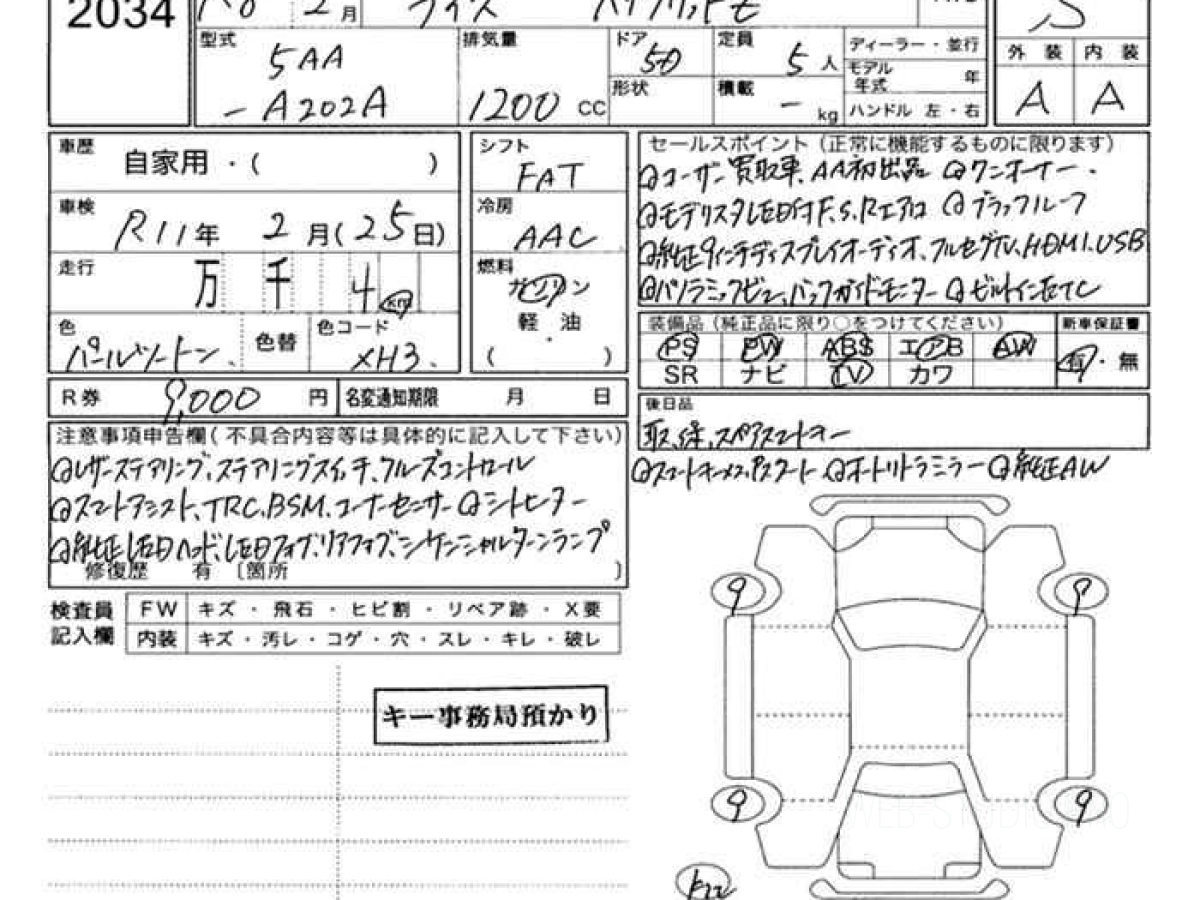 2034 R8 2月 ライズ ハイブリッドZ S
型式 5AA -A202A
排気量 1200 CC
ドア 5D 形状
定員 5人 積載 - kg
ディーラー・並行
モデル年式 年
ハンドル 左・右
外装 内装
A A
車歴 自家用・( )
車検 R11年 2月(25日)
走行 万 千 4 km
色 パールツートン、 色替 色コード XH3.
シフト FAT
冷房 AAC
燃料 ガソリン
軽油
( )
セールスポイント(正常に機能するものに限ります)
◎ユーザー買取車、AA初出品 ◎ワンオーナー.
◎モデリスタLED付F.S.Rエアロ ◎ブラックルーフ
◎純正9インチディスプレイオーディオ、フルセグTV、HDMI、USB
◎パノラミックビュー、バックガイドモニター ◎ビルトインETC
装備品(純正品に限り○をつけてください) 新車保証書
PS PW ABS エアB AW 有・無
SR ナビ TV カワ
R券 9,000円 名変通知期限 月 日
後日品
取、保、スペアスマートキー
注意事項申告欄(不具合内容等は具体的に記入して下さい)
◎レザーステアリング、ステアリングスイッチ、クルーズコントロール
◎スマートアシスト、TRC、BSM、コーナーセンサー ◎シートヒーター
◎純正LEDヘッド、LEDフォグ、リアフォグ、シーケンシャルターンランプ
修復歴 有 〔箇所 〕
◎スマートキー ◎オートリトラミラー ◎純正AW
検査員記入欄
FW キズ・飛石・ヒビ割・リペア跡・X要
内装 キズ・汚レ・コゲ・穴・スレ・キレ・破レ
キー事務局預かり
9 9
9 9